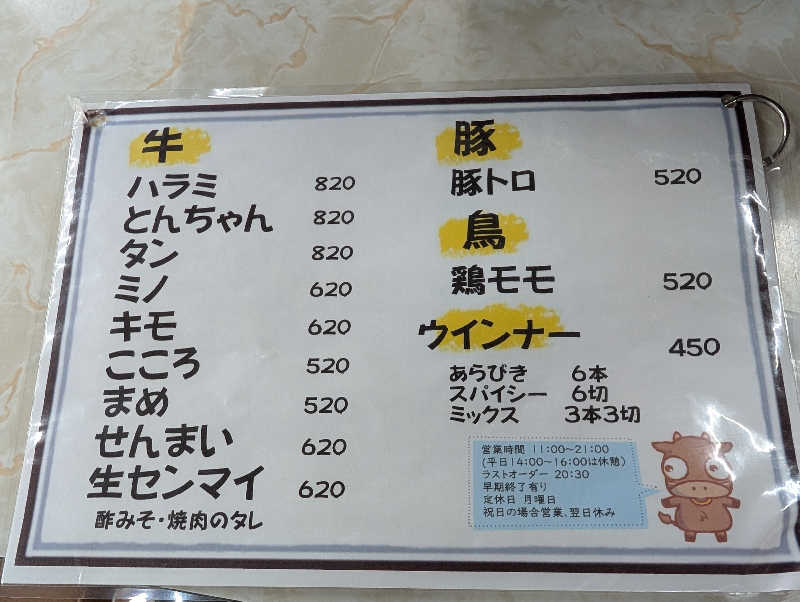 牛
ハラミ 820
とんちゃん 820
タン 820
ミノ 620
キモ 620
こころ 520
まめ 520
せんまい 620
生センマイ 620
酢みそ・焼肉のタレ
豚
豚トロ 520
鳥
鶏モモ 520
ウインナー 450
あらびき 6本
スパイシー 6切
ミックス 3本3切
営業時間 11:00~21:00
(平日14:00~16:00は休憩)
ラストオーダー 20:30
早期終了有り
定休日 月曜日
祝日の場合営業、翌日休み